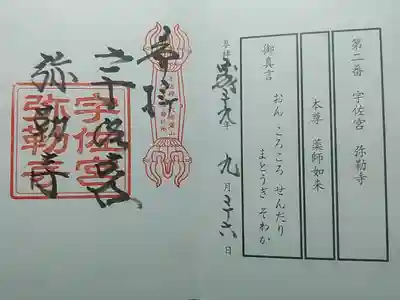 第二番 宇佐宮 弥勒寺
本尊 薬師如来
御真言
おん ころころ せんだり
まとうぎ そわか
奉拝
年 九月二十六日
奉拝
宇佐宮
弥勒寺
宇佐宮
弥勒寺